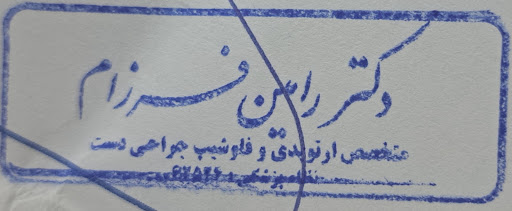 دکتر رامین فرزام
متخصص ارتوپدی و فلوشیپ جراحی دست
نظام پزشکی: